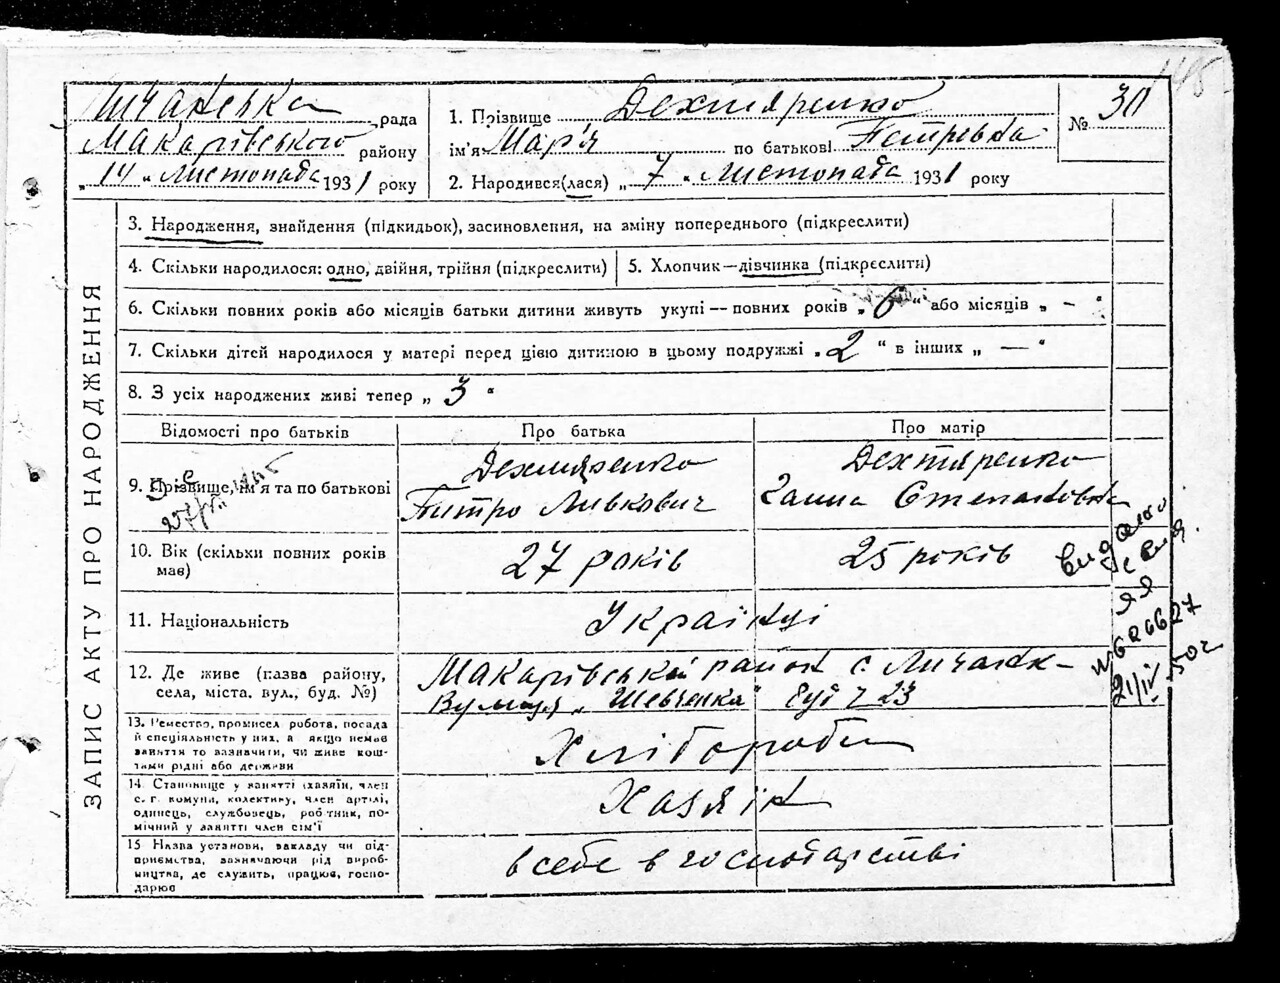 Личанська рада
Макарівського району
„14" Листопада 1931 року
1. Прізвище Дехтяренко
ім'я Мар'я по батькові Петрівна
2. Народився(лася) „7" Листопада 1931 року
№ 30
ЗАПИС АКТУ ПРО НАРОДЖЕННЯ
3. Народження, знайдення (підкидьок), засиновлення, на зміну попереднього (підкреслити)
4. Скільки народилося: одно, двійня, трійня (підкреслити)
5. Хлопчик—дівчинка (підкреслити)
6. Скільки повних років або місяців батьки дитини живуть укупі — повних років „6" або місяців „ — "
7. Скільки дітей народилося у матері перед цією дитиною в цьому подружжі „2" в інших „ — "
8. З усіх народжених живі тепер „3"
Відомості про батьків
Про батька
Про матір
9. Прізвище, ім'я та по батькові
Дехтяренко
Питро Ливкович
Дехтяренко
Ганна Степановна
10. Вік (скільки повних років має)
27 років
25 років
11. Національність
Українці
12. Де живе (назва району,
села, міста, вул., буд. №)
Макарівський район с. Личанк-
Вулиця „Шевченка" Буд № 23
13. Ремество, промисел робота, посада
й спеціяльність у них, а якщо немає
заняття то зазначити, чи живе кош-
тами рідні або держави
Хлібороби
14. Становище у занятті (хазяїн, член
с.-г. комуни, колективу, член артілі,
одинець, службовець, робітник, по-
мічний у занятті член сім'ї
Хазяїн
15. Назва установи, закладу чи під-
приємства, зазначаючи рід вироб-
ництва, де служить, працює, госпо-
дарює
в себе в господарстві
Видано
свид.
ЯЯ
№ 620627
21/IV 50 г